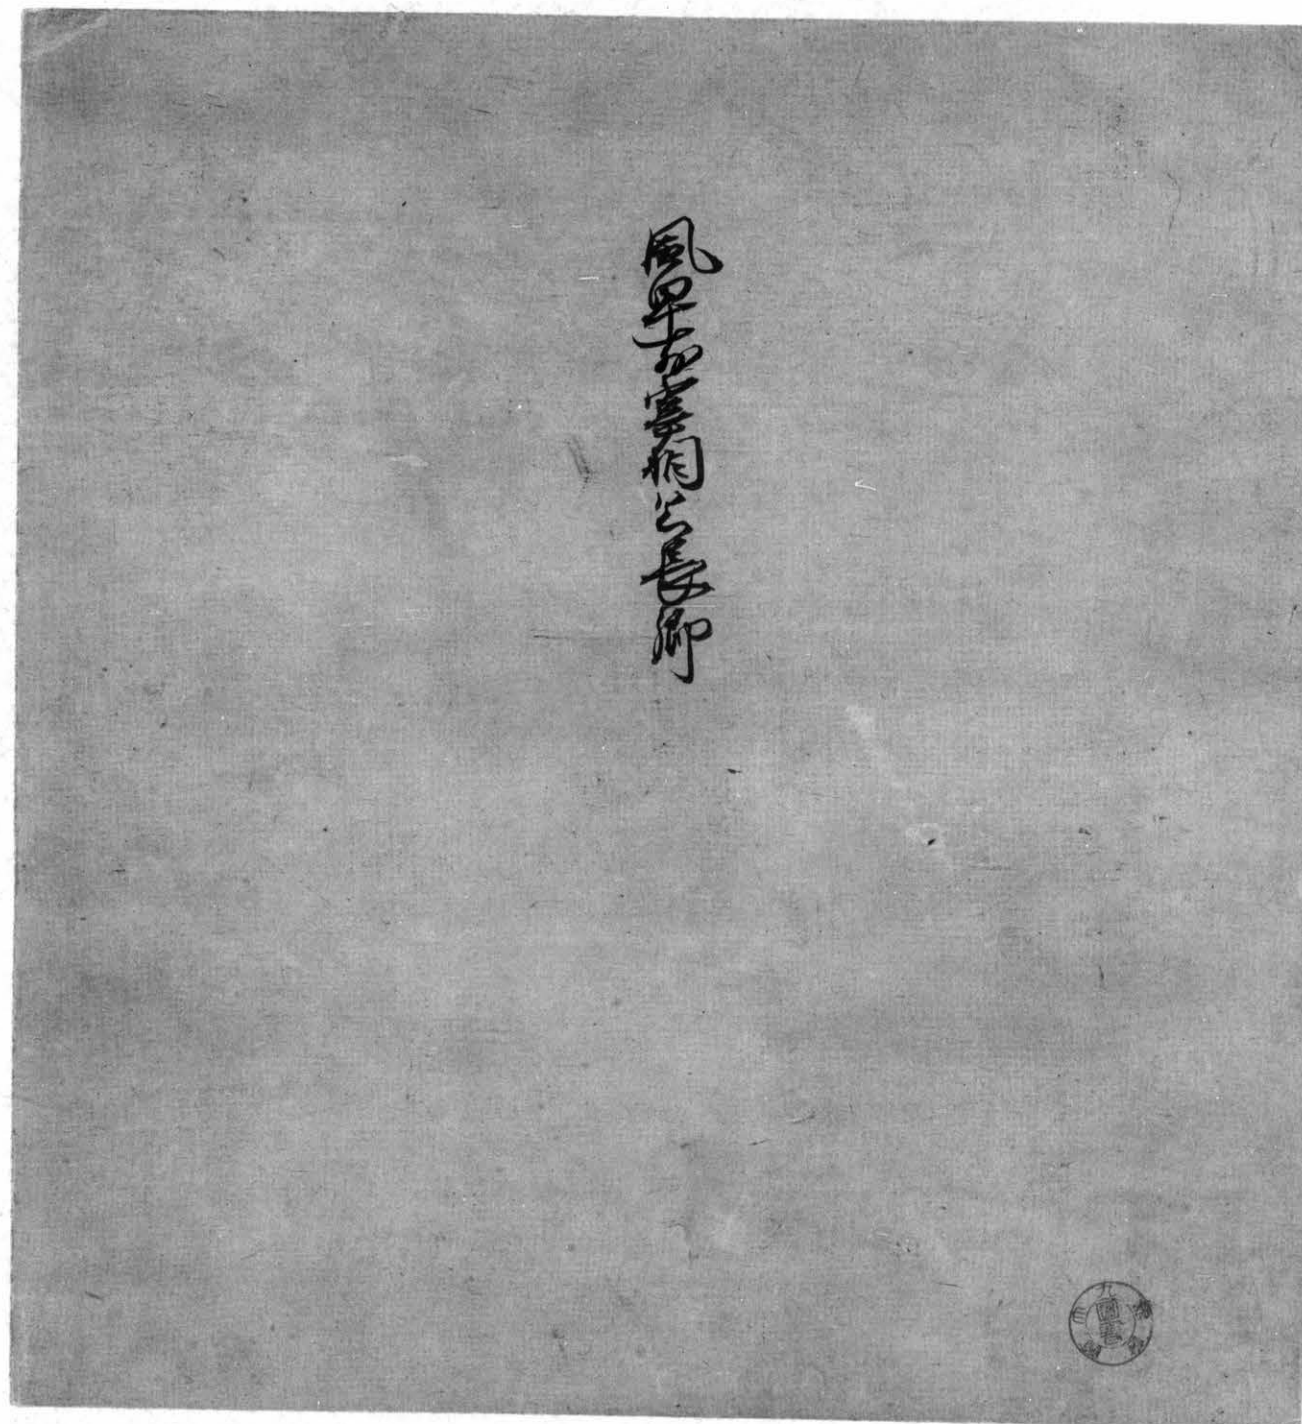 風早前宰相公長卿
図書